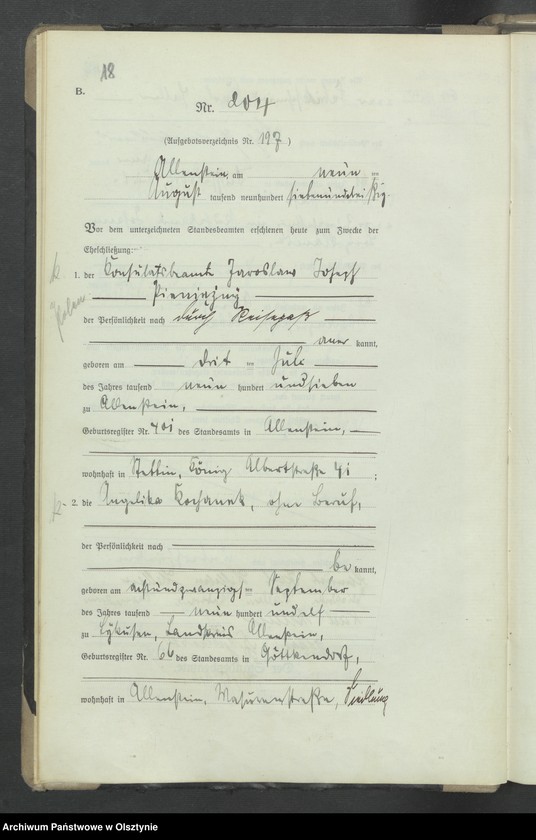 18
B.
Nr. 204
(Aufgebotsverzeichnis Nr. 197)
Allenstein, am neun ten
August tausend neunhundert siebenunddreißig.
Vor dem unterzeichneten Standesbeamten erschienen heute zum Zwecke der
Eheschließung:
k
1. der Konsulatsbeamte Jaroslaw Joseph
Polen
Pieniężny
der Persönlichkeit nach durch Reisepaß
aner kannt,
geboren am drit ten Juli
des Jahres tausend neun hundert undsieben
zu Allenstein,
Geburtsregister Nr. 401 des Standesamts in Allenstein,
wohnhaft in Stettin, König Albertstraße 41 ;
k
2. die Angelika Kochanek, ohne Beruf,
der Persönlichkeit nach
be kannt,
geboren am achtundzwanzigs ten September
des Jahres tausend neun hundert undelf
zu Lykusen, Landkreis Allenstein,
Geburtsregister Nr. 66 des Standesamts in Göttkendorf,
wohnhaft in Allenstein, Masurenstraße, Siedlung
Archiwum Państwowe w Olsztynie